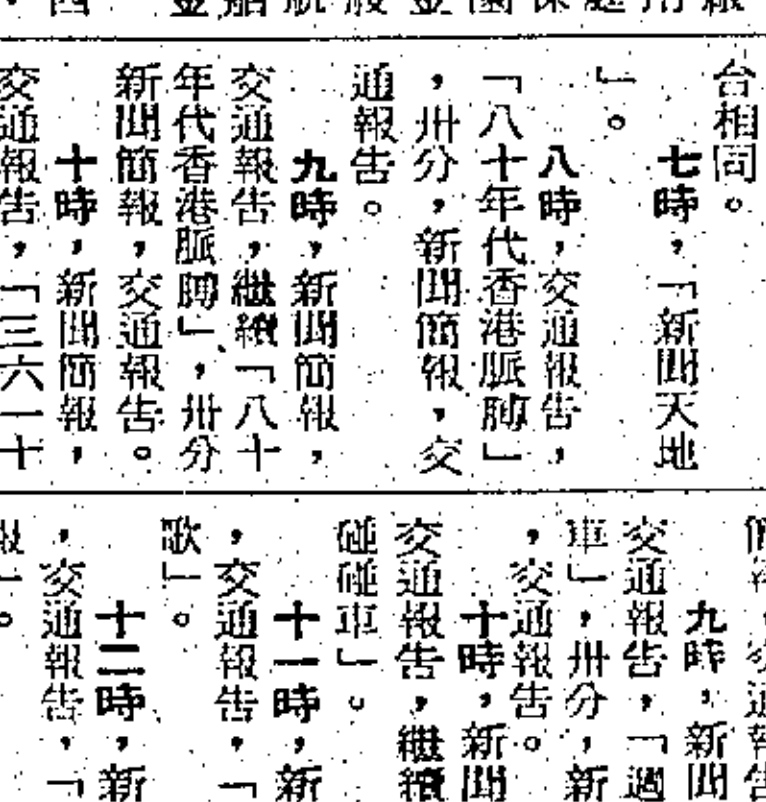 台相同。
七時，「新聞天地
」。
八時，交通報告，
「八十年代香港脈膊」
，卅分，新聞簡報，交
通報告。
九時，新聞簡報，
交通報告，繼續「八十
年代香港脈膊」，卅分
新聞簡報，交通報告。
十時，新聞簡報，
交通報告，「三六一十
九時，新聞
交通報告，「週
車」，卅分，新
，交通報告。
十時，新聞
交通報告，繼續
碰碰車」。
十一時，新
，交通報告，「
歌」。
十二時，新
，交通報告，「
報」。